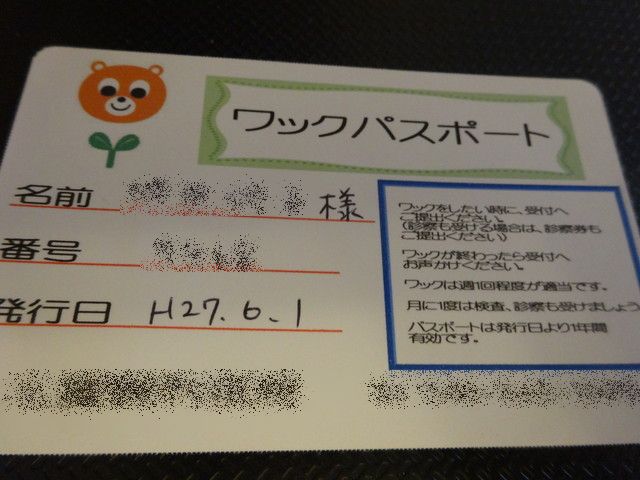 ワックパスポート
名前 様
番号
発行日 H27.6.1
ワックをしたい時に、受付へ
ご提出ください。
(診察も受ける場合は、診察券も
ご提出ください)
ワックが終わったら受付へ
お声かけください。
ワックは週1回程度が適当です。
月に1度は検査、診察も受けましょう
パスポートは発行日より1年間
有効です。